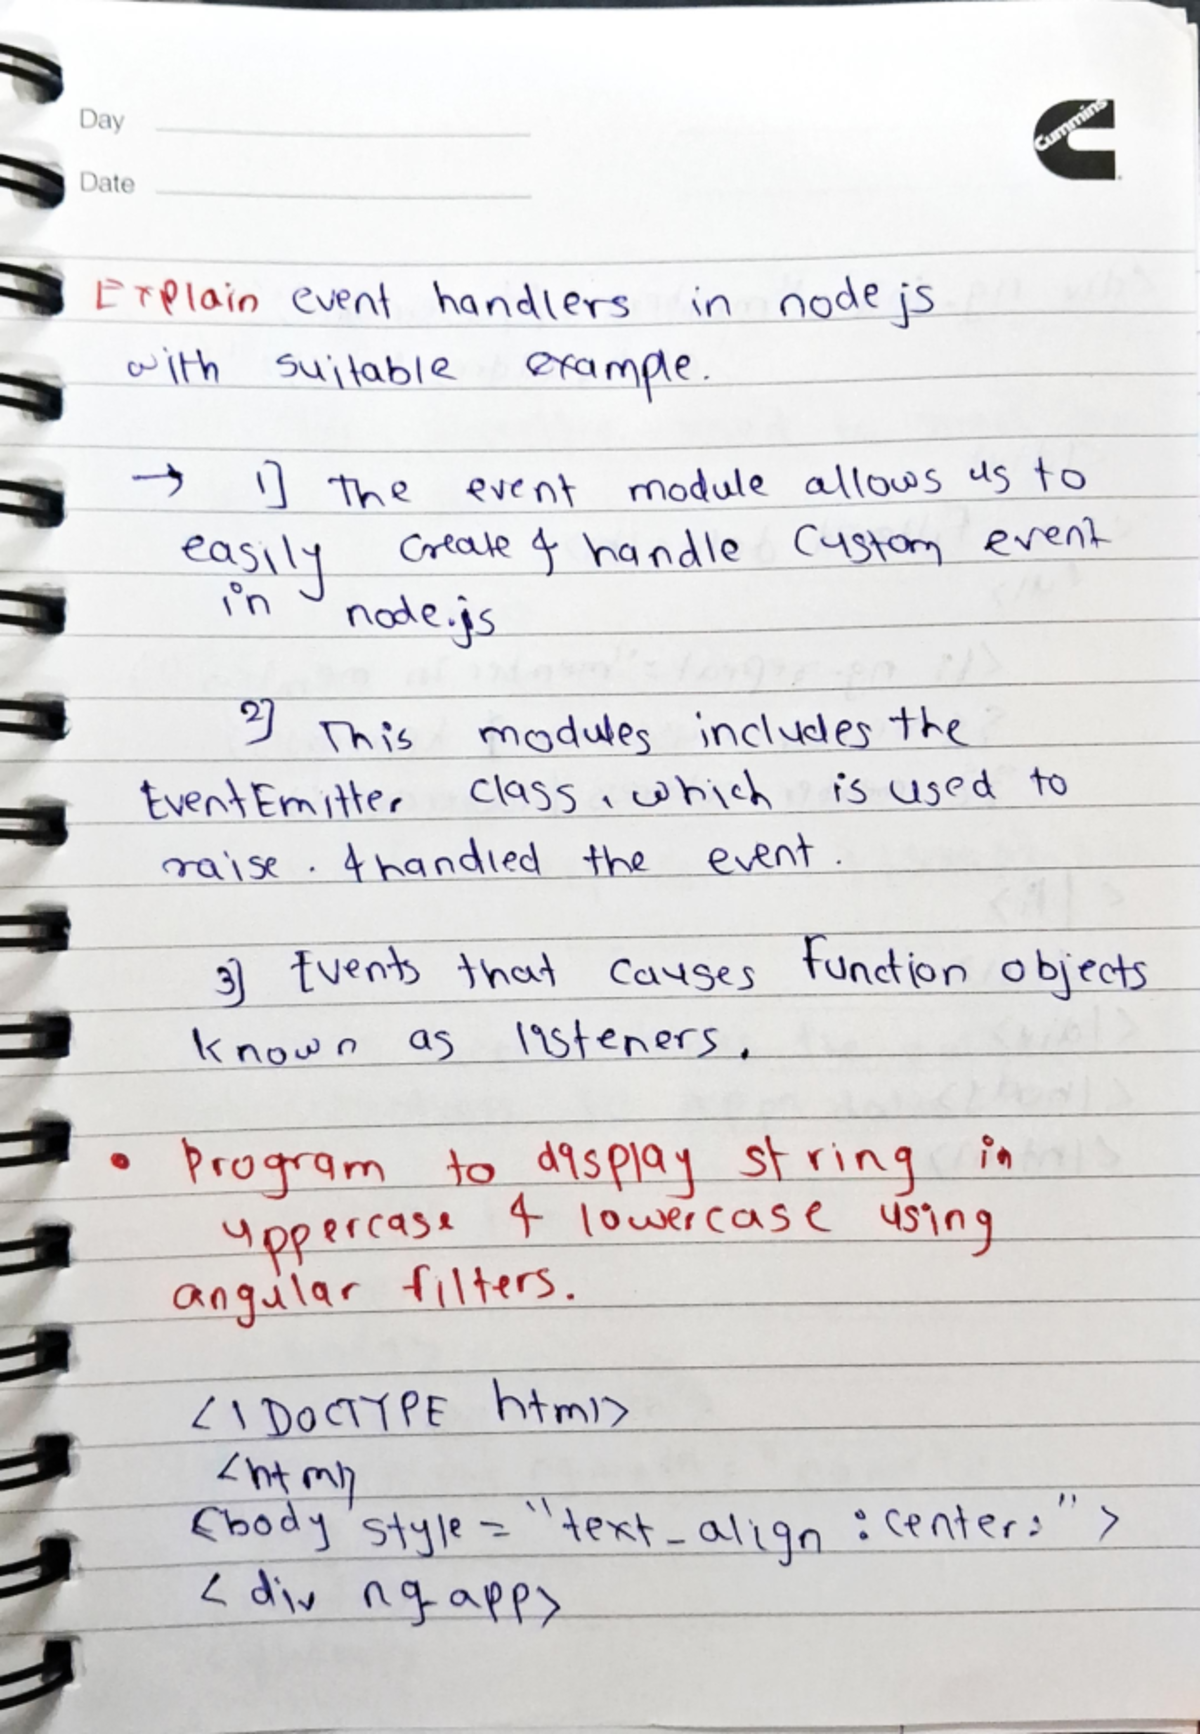 Day
Date
Cummins
Explain event handlers in node js
with suitable example.
→ 1] The event module allows us to
easily create & handle custom event
in node.js
2] This modules includes the
EventEmitter class, which is used to
raise. & handled the event.
3] Events that causes function objects
known as listeners.
• Program to display string in
uppercase & lowercase using
angular filters.
<! DOCTYPE html>
<html>
<body style = "text-align : center: ">
<div ng-app>